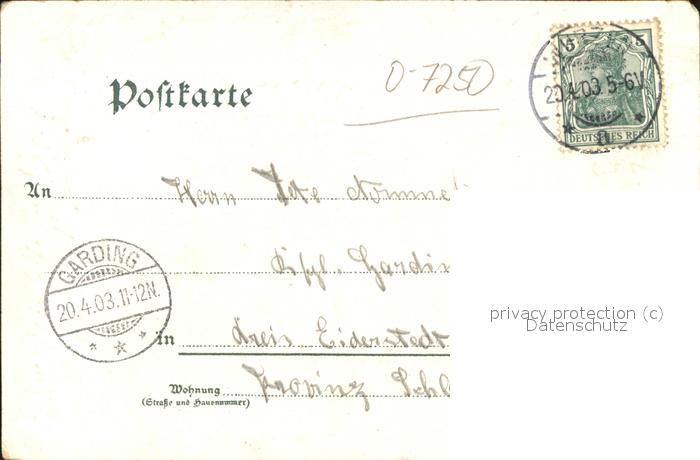 Postkarte
0-7250
5 5
20.4.03. 5-6V.
DEUTSCHES REICH
An Herrn
GARDING
20.4.03. 11-12N.
Gardin
in Kreis Eiderstedt
Wohnung
(Straße und Hausnummer)
Provinz Schl
privacy protection (c)
Datenschutz